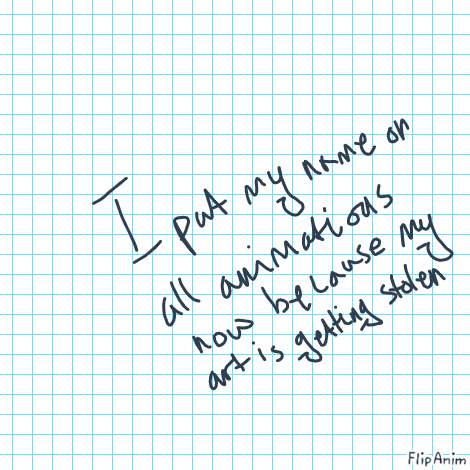 I put my name on
all animations
now because my
art is getting stolen
FlipAnim